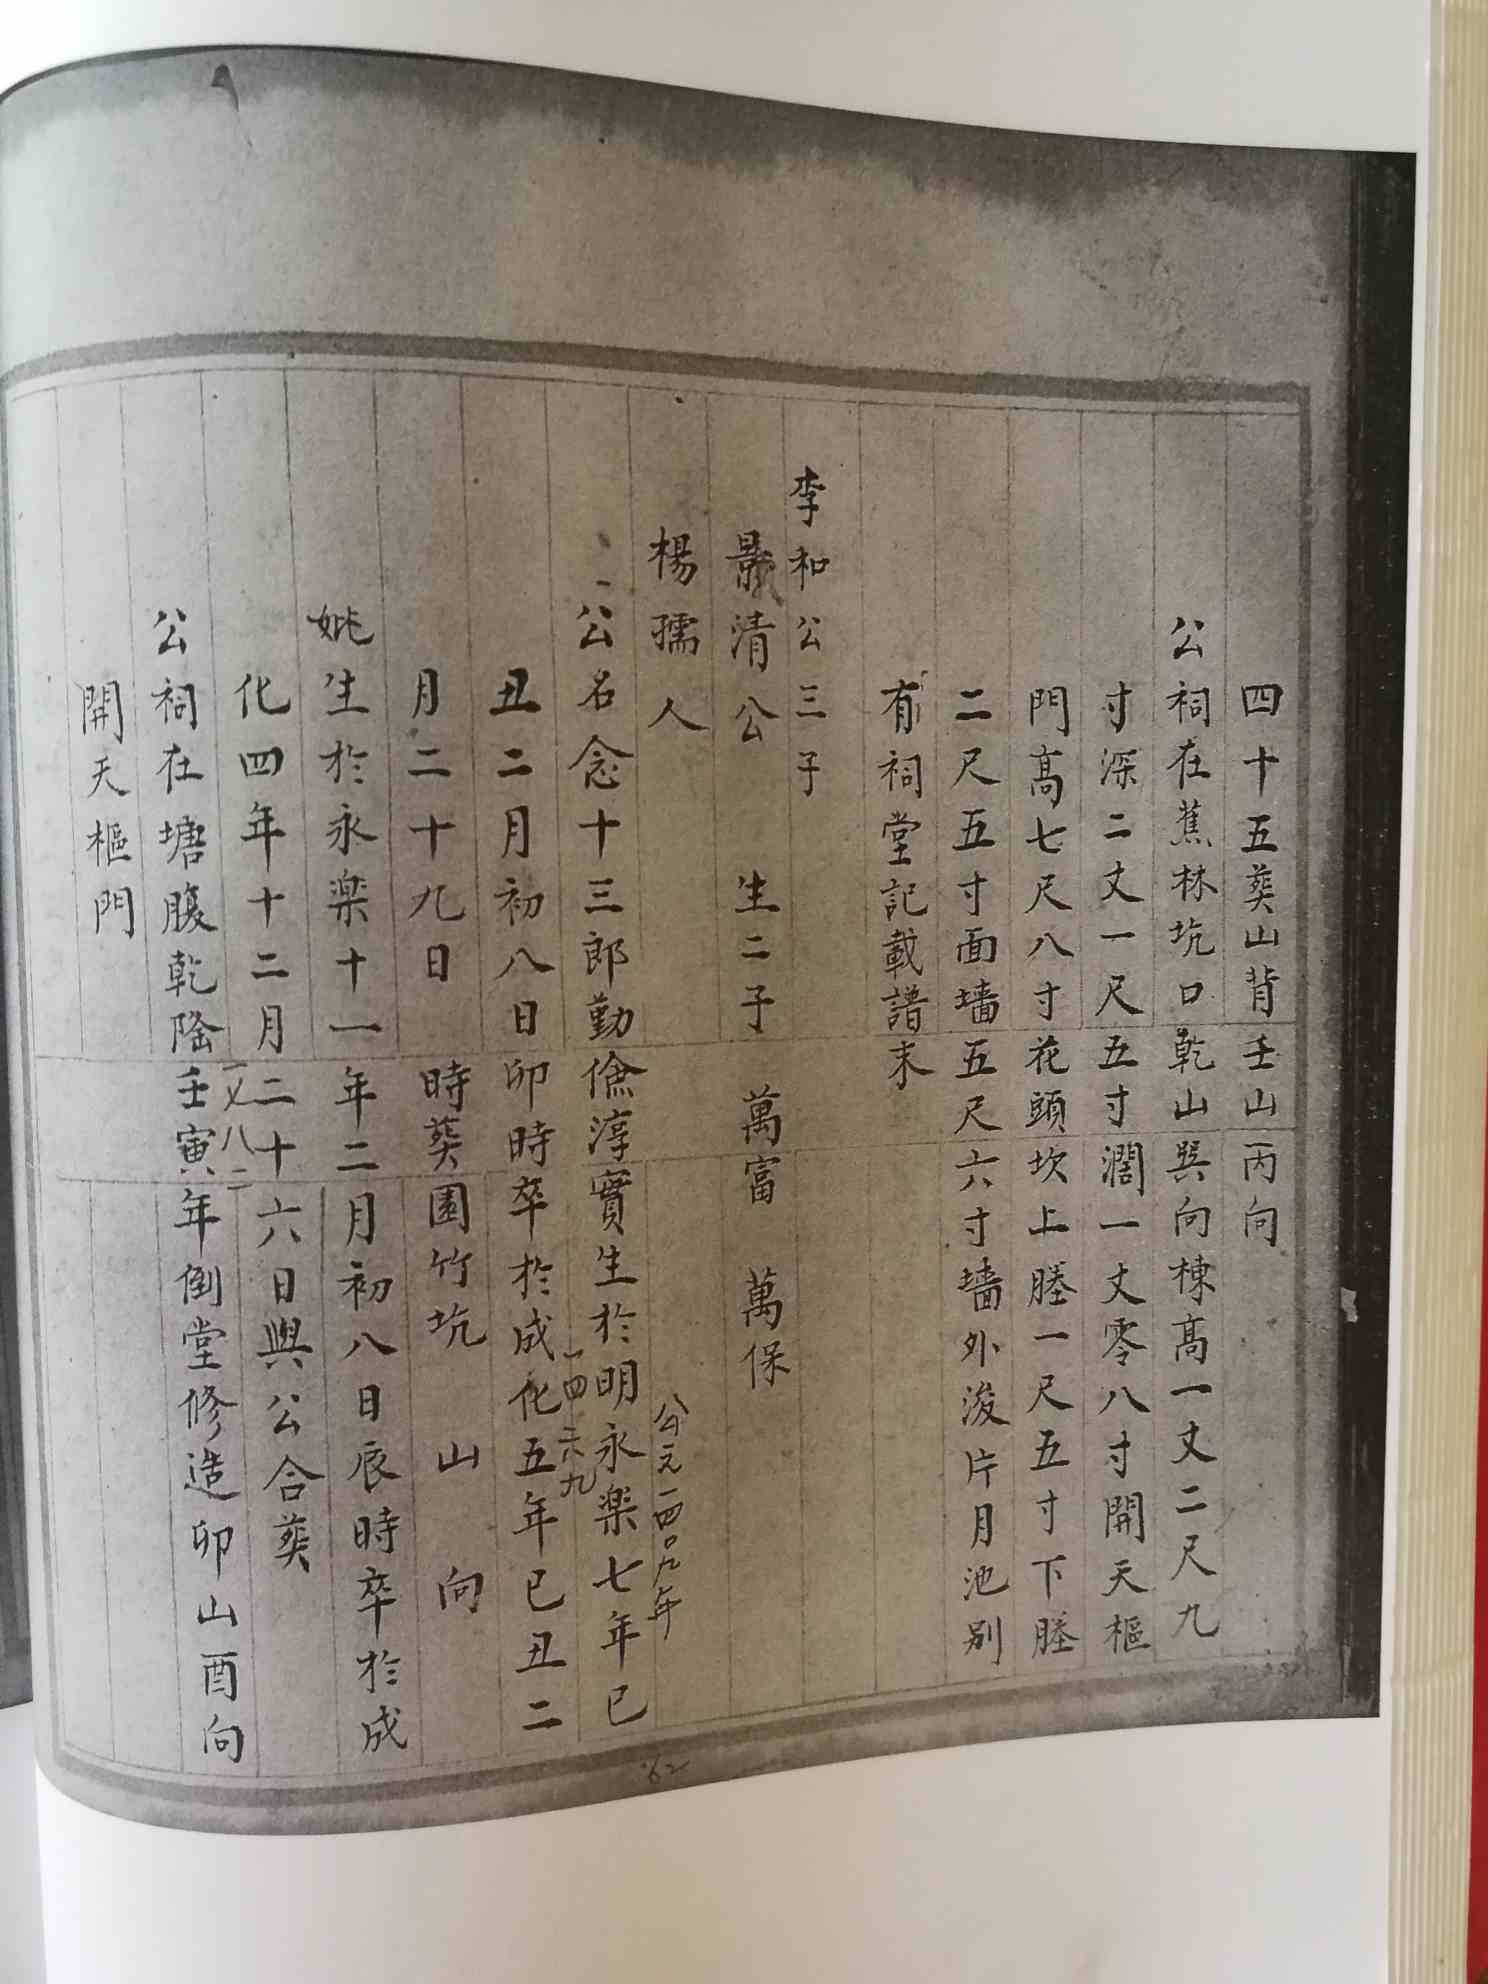 四十五葬山背壬山丙向
公祠在蕉林坑口乾山巽向棟高一丈二尺九
寸深二丈一尺五寸濶一丈零八寸開天樞
門高七尺八寸花頭坎上塍一尺五寸下塍
二尺五寸面墻五尺六寸墻外浚片月池別
有祠堂記載譜末
李和公三子
清公　生二子　萬富　萬保
楊孺人
公元一四〇九年
公名念十三郎勤儉淳實生於明永楽七年已
一四六九
丑二月初八日卯時卒於成化五年已丑二
月二十九日　時葬園竹坑　山　向
妣生於永楽十一年二月初八日辰時卒於成
化四年十二月二十六日與公合葬
公祠在塘腹乾隆壬寅年倒堂修造卯山酉向
開天樞門
62